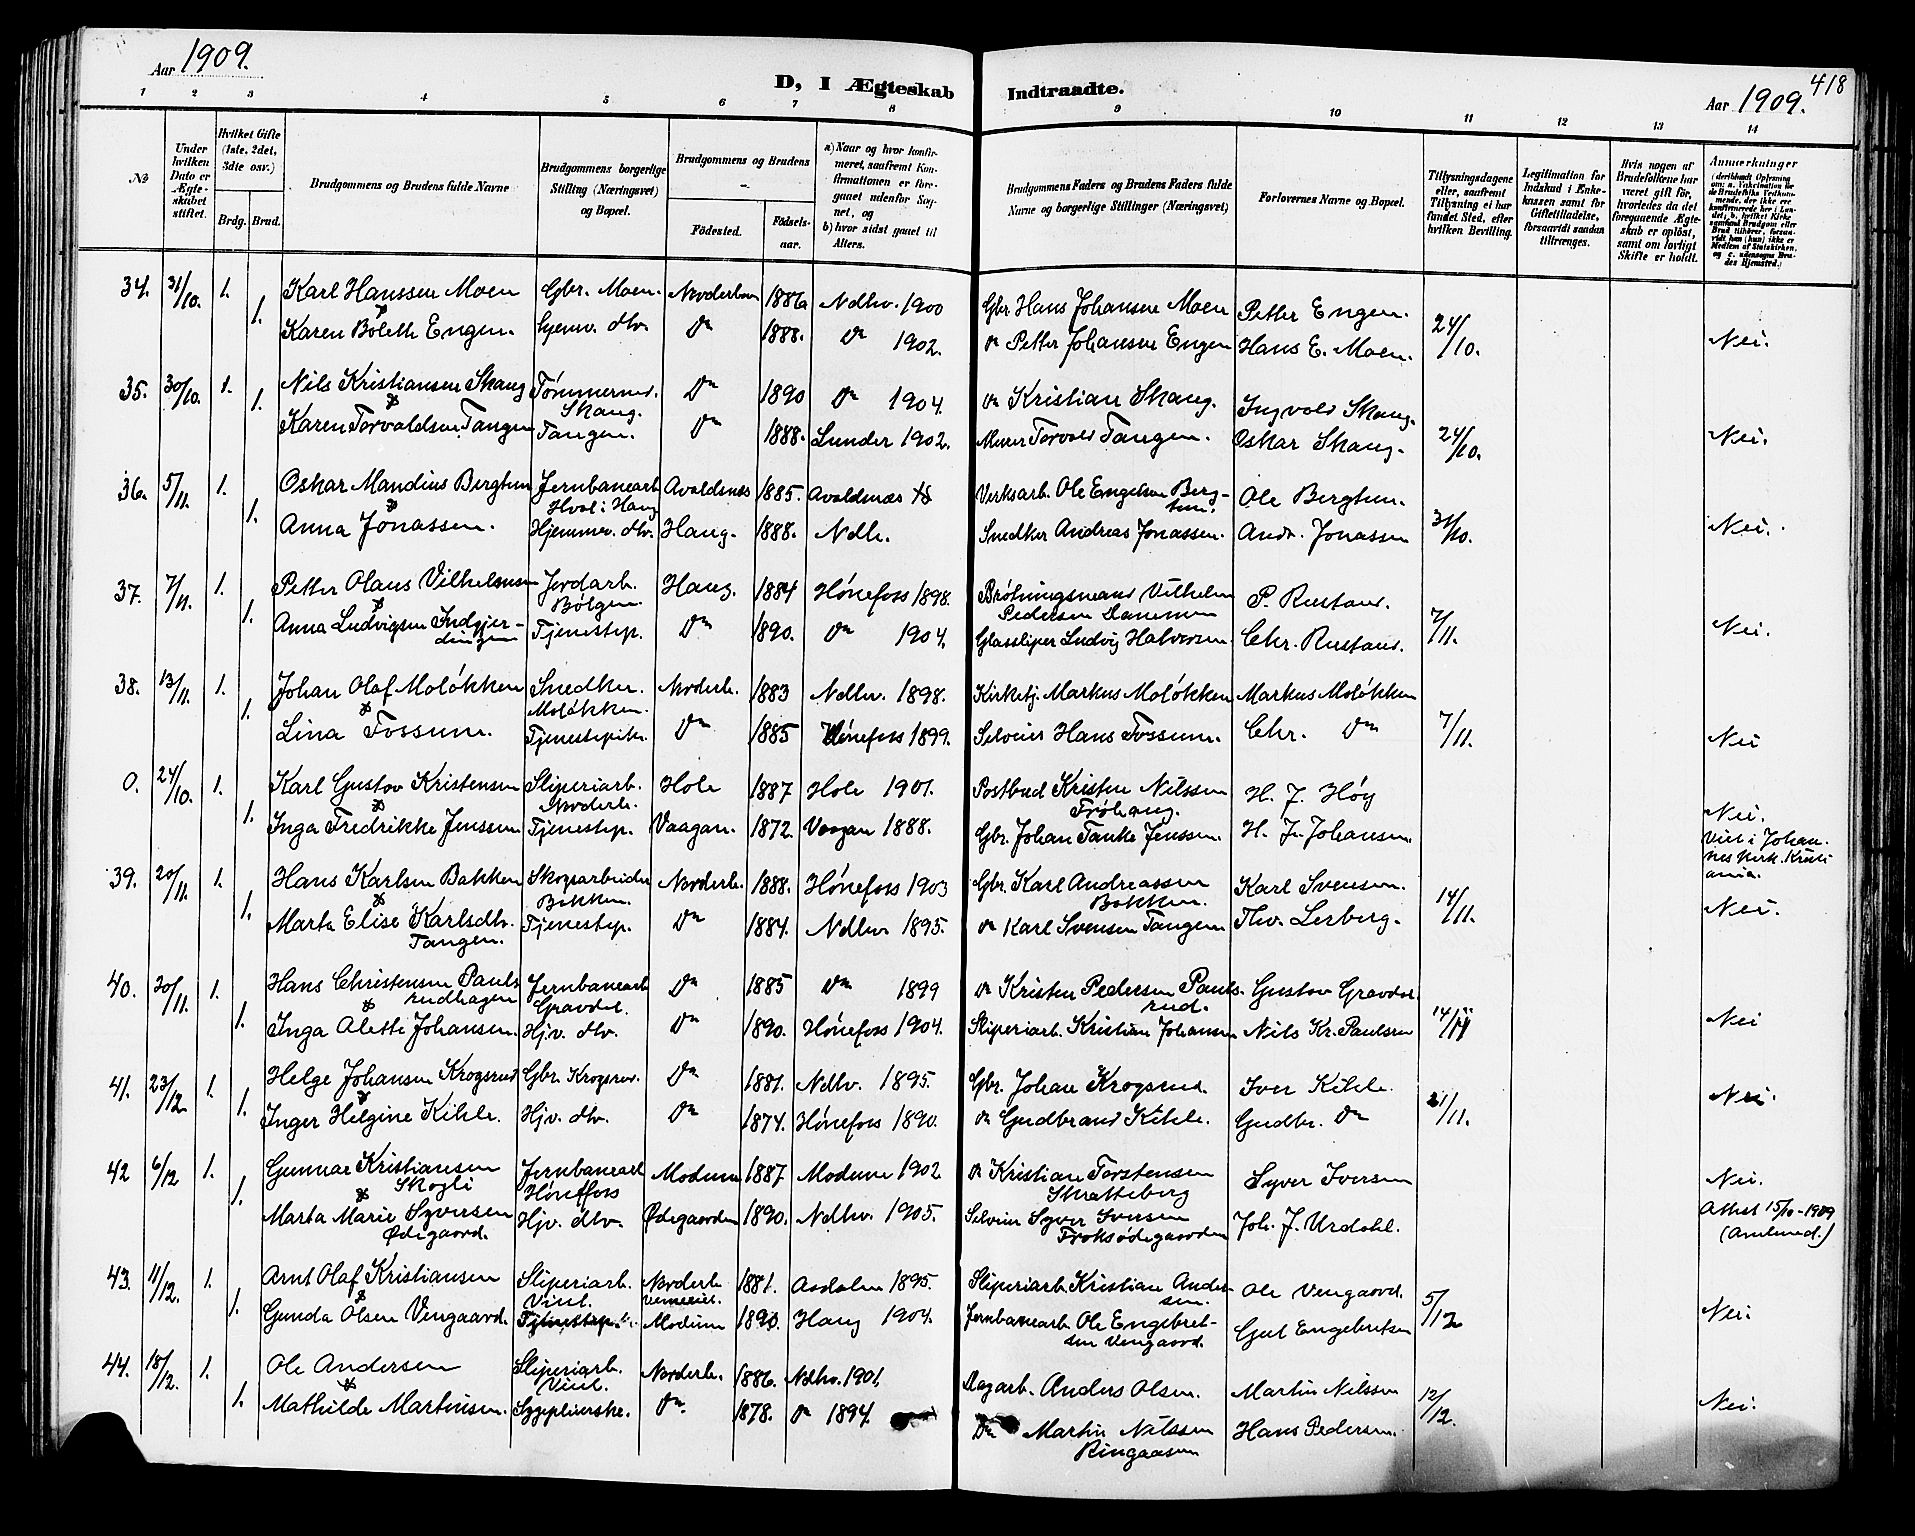 Aar 1909.
D, I Ægteskab Indtraadte.
418
Aar 1909.
1 2 3 4 5 6 7 8 9 10 11 12 13 14
№
Under hvilken Dato er Ægteskabet stiftet.
Hvilket Gifte (1ste, 2det, 3die osv.)
Brdg. Brud.
Brudgommens og Brudens fulde Navne
Brudgommens borgerlige Stilling (Næringsvei) og Bopæl.
Brudgommens og Brudens
Födested. Födselsaar.
a) Naar og hvor konfirmeret, saafremt Konfirmationen er foregaaet udenfor Sognet, og
b) hvor sidst gaaet til Alters.
Brudgommens Faders og Brudens Faders fulde Navne og borgerlige Stillinger (Næringsvei)
Forlovernes Navne og Bopæl.
Tillysningsdagene eller, saafremt Tillysning ei har fundet Sted, efter hvilken Bevilling.
Legitimation for Indskud i Enkekassen samt for Giftetilladelse, forsaavidt saadan tiltrænges.
Hvis nogen af Brudefolkene har været gift för, hvorledes da det foregaaende Ægteskab er oplöst, samt om lovligt Skifte er holdt.
Anmærkninger
34. 31/10. 1. Karl Hanssen Moen Gbr. Moen. Norderhov 1886 Ndhv. 1900 Gbr. Hans Johansen Moen Petter Engen.
1. Karen Bolette Engen. Hjemv. dtr. Do 1888. Do 1902. Do Petter Johansen Engen Hans E. Moen. 24/10. Nei.
35. 30/10. 1. Nils Kristiansen Skaug Tømmermd. Skaug. Do 1890 Do 1904. Do Kristian Skaug. Ingvald Skaug.
1. Karen Torvaldsen Tangen Tangen. Do 1888. Lunder 1902. Murer Torvald Tangen. Oskar Skaug. 24/10. Nei.
36. 5/11. 1. Oskar Mandius Bergtun Jernbanearb. Hval i Haug Avaldsnæs 1885. Avaldsnæs Verksarb. Ole Engelsen Bergtun. Ole Bergtun.
1. Anna Jonassen. Hjemmev. dtr. Haug. 1888. Ndh. Snedker Andreas Jonassen. Andr. Jonassen 31/10. Nei.
37. 7/11. 1. Petter Olaus Vilhelmsen Jordarb. Bølgen. Haug. 1884 Hønefoss 1898. Brøtningsmand Vilhelm Pedersen P. Rustand.
1. Anna Ludvigsen Indgjerdingen Tjenestep. Do 1890. Do 1904. Glassliper Ludvig Halvorsen. Chr. Rustand. 7/11. Nei.
38. 13/11. 1. Johan Olaf Moløkken Snedker. Moløkken. Norderh. 1883 Ndhv. 1898. Kirketj. Markus Moløkken Markus Moløkken
1. Lina Fossum. Tjenestepike. Do 1885 Hønefoss 1899. Selveier Hans Fossum. Chr. Do 7/11. Nei
0. 24/10. 1. Karl Gustov Kristensen Sliperiarb. Norderh. Hole 1887 Hole 1901. Postbud Kristen Nilssen Frøhaug. H. J. Høy
1. Inga Fredrikke Jenssen Tjenestep. Vaagan. 1872. Vaagan 1888. Gbr. Johan Tanke Jenssen. H. Fr. Johansen. Nei. Viet i Johannes kirk. Kristiania.
39. 20/11. 1. Hans Karlsen Bakken Skogsarbeider Bakken. Norderh. 1888. Hønefoss 1903 Gbr. Karl Andreassen Bakken. Karl Svensen.
1. Marta Elise Karlsdtr. Tangen. Tjenestep. Do 1884. Ndhv 1895. Do Karl Svensen Tangen Thv. Lerberg. 14/11. Nei.
40. 20/11. 1. Hans Christensen Paulsrudhagen Jernbanearb. Gravdal. Do 1885 Do 1899 Do Kristen Pedersen Paulsrud. Gustov Gravdal.
1. Inga Alette Johansen. Hjv. dtv. Do 1890. Hønefoss 1904. Sliperiarb. Kristian Johansen Nils Kr. Paulsen 14/11 Nei
41. 23/12. 1. Helge Johansen Krogsrud Gbr. Krogsrud. Do 1881. Ndhv. 1895. Gbr. Johan Krogsrud. Iver Kihle.
1. Inger Helgine Kihle. Hjv. dtv. Do 1874. Hønefoss 1890. Do Gudbrand Kihle. Gudbr. Do 21/11. Nei.
42 6/12 1. Gunnar Kristiansen Skogli Jernbanearb. Hønefoss Modum 1887 Modum 1902 Do Kristian Torstensen Skratteberg Syver Iversen Nei.
1. Marta Marie Syversen Ødegaard. Hjv. dtv. Ødegaarden 1890. Ndhv. 1905. Selveier Syver Iversen Froksødegaarden Joh. J. Urdahl. Attest 15/10-1909
43. 11/12. 1. Arnt Olaf Kristiansen Sliperiarb. Viul. Norderh. 1881. Aadalen 1895. Sliperiarb. Kristian Andersen. Ole Vengaard.
1. Gunda Olsen Vengaard. Tjenestep. Modum 1890. Haug 1904. Jernbanearb. Ole Engebretsen Vengaard. Gul Engebretsen 5/12 Nei.
44. 18/12. 1. Ole Andersen Sliperiarb. Viul. Norderh. 1886. Ndhv. 1901. Dagarb. Anders Olsen. Martin Nilssen
1. Mathilde Martinsen. Sygepleierske. Do. 1878. Do 1894. Do Martin Nilssen Ringaasen Hans Pedersen. 12/12. Nei.